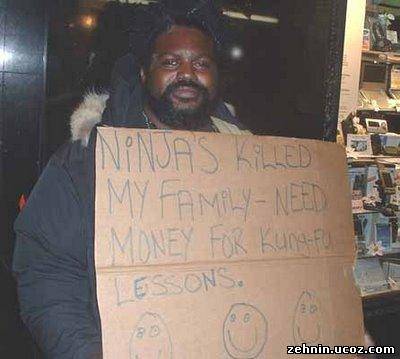 NiNJA'S KiLLED
MY FAMiLY - NEED
MONEY FOR KUNG-FU
LESSONS.
zehnin.ucoz.com